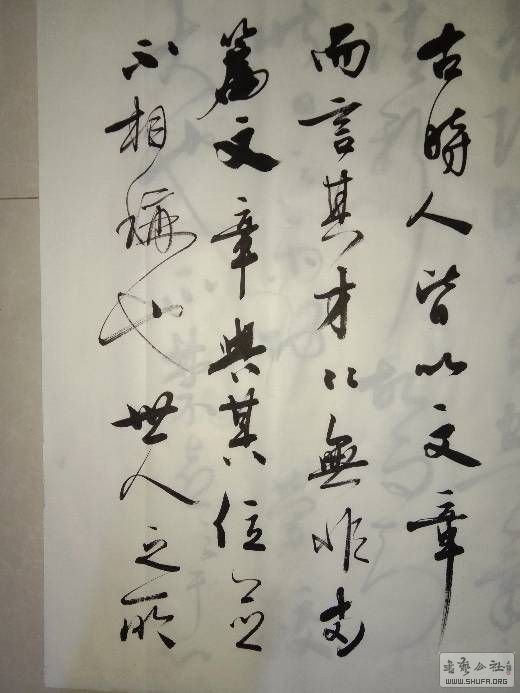 古時人皆以文章
而言其才〻無非
篇文章與其位並
不相稱也世人之所
書藝公社
WWW.SHUFA.ORG